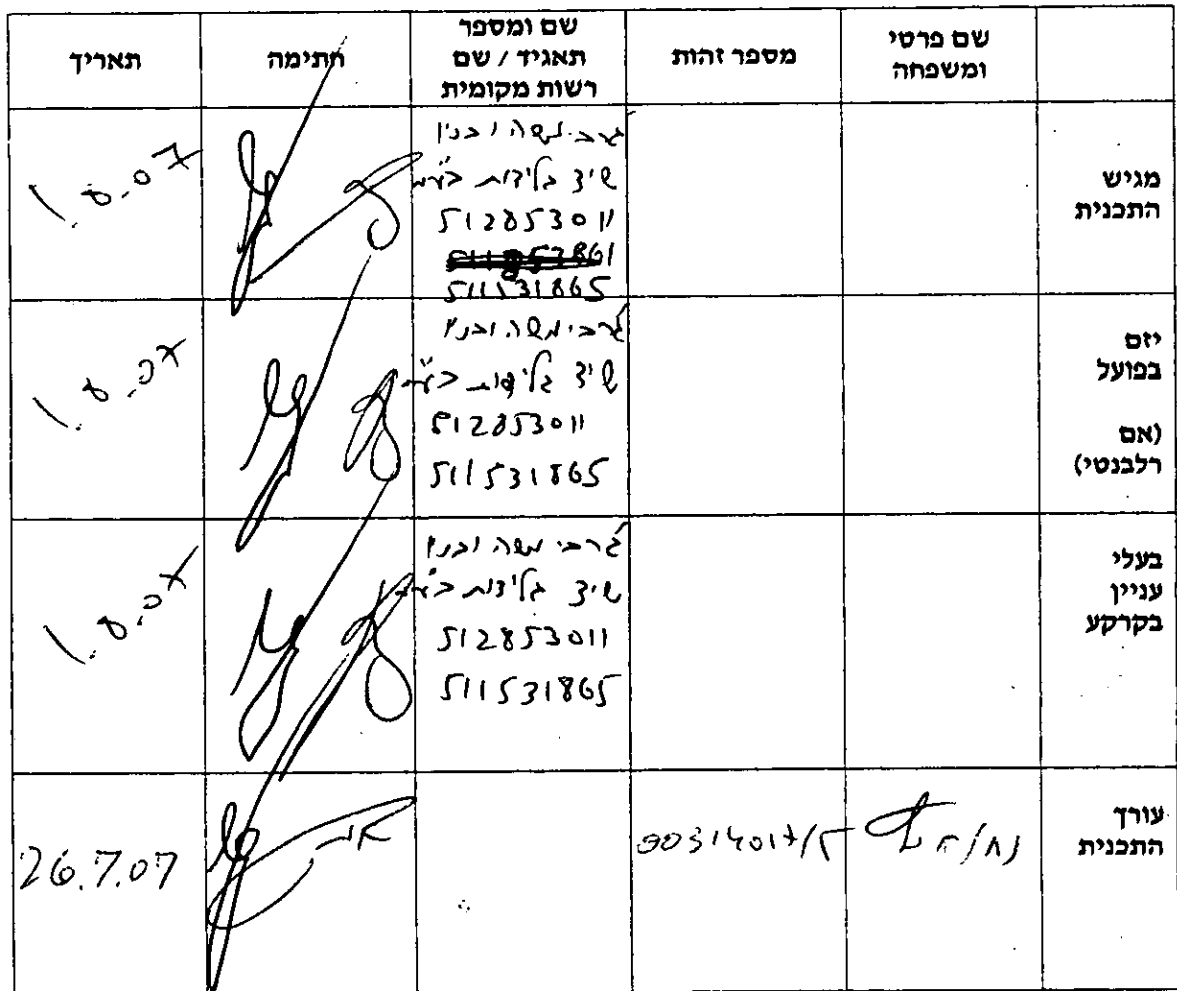 שם פרטי
ומשפחה
מספר זהות
שם ומספר
תאגיד / שם
רשות מקומית
חתימה
תאריך
מגיש
התכנית
משה ובניו
שיצ גלידות בע"מ
512853011
511531865
1.8.07
יזם
בפועל
(אם
רלבנטי)
משה ובניו
שיצ גלידות בע"מ
512853011
511531865
1.8.07
בעלי
עניין
בקרקע
משה ובניו
שיצ גלידות בע"מ
512853011
511531865
1.8.07
עורך
התכנית
00314017/5
26.7.07